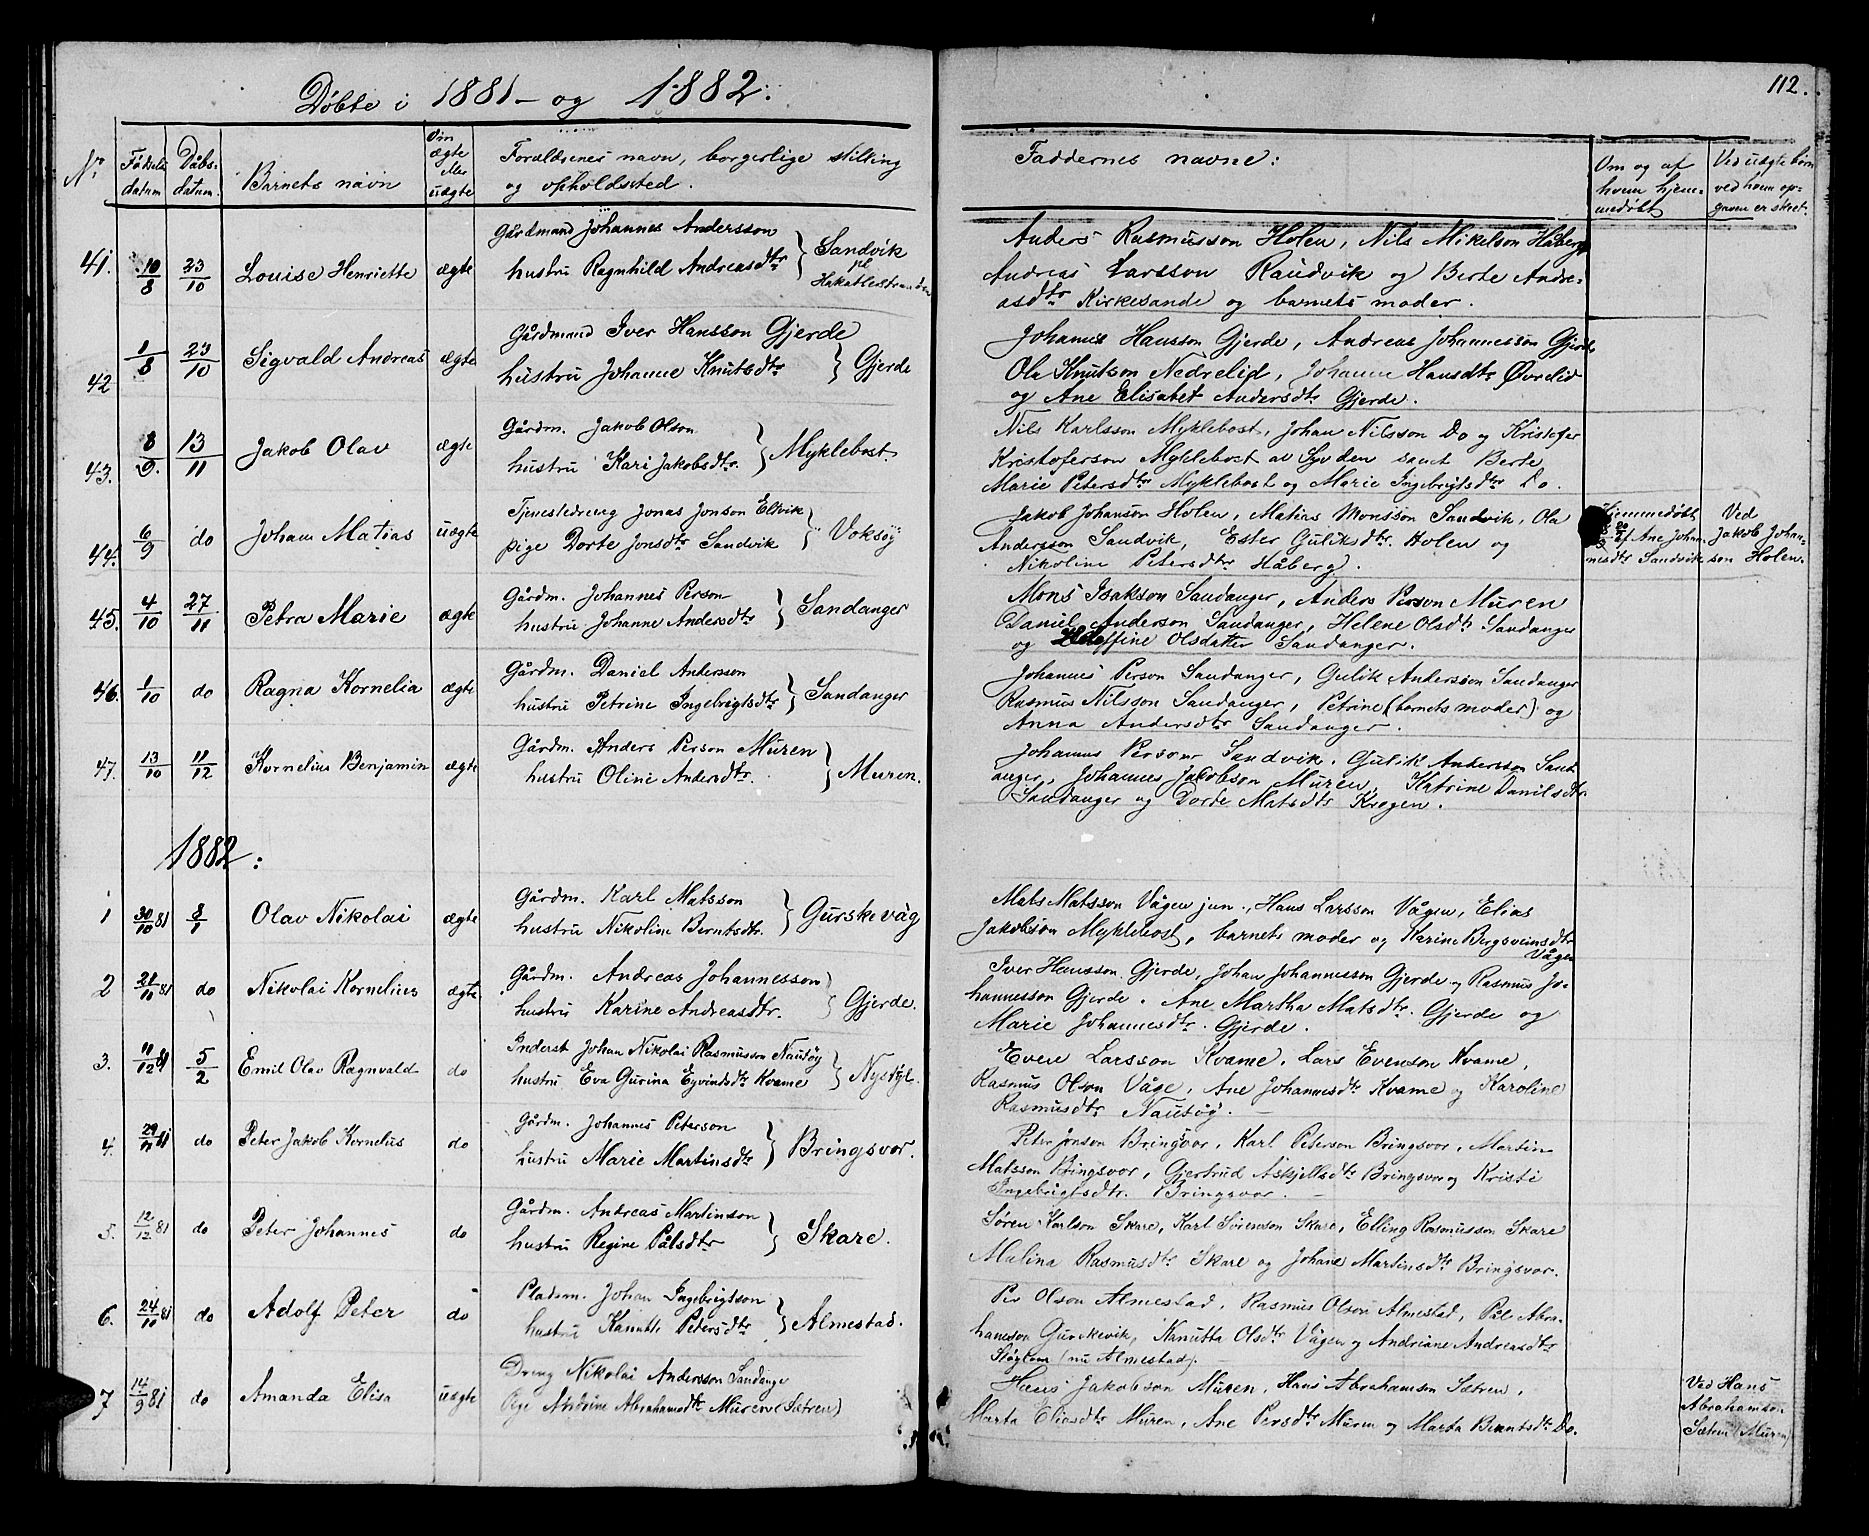 Døbte i 1881 - og 1882.
112.
Nr. Fødsels datum. Dåbs- datum. Barnets navn Om ægte eller uægte Forældrenes navn, borgerlige stilling og opholdssted. Faddernes navne: Om og af hvem hjem- medøbt Ved uægte børn ved hvem op- gaven er skeet.
41. 10/8 23/10 Louise Henriette ægte Gårdmand Johannes Andersson
hustru Ragnhild Andreasdtr } Sandvik pl. Hakallestranden
Anders Rasmusson Holen, Nils Mikelson Håberg
Andreas Larsson Raudvik og Berte Andre-
asdtr Kirkesande og barnets moder.
42 1/8 23/10 Sigvald Andreas ægte Gårdmand Iver Hansson Gjerde
hustru Johanne Knutsdtr } Gjerde
Johannes Hansson Gjerde, Andreas Johannesson Gjerde
Ola Knutson Nedrelid, Johanne Hansdtr Øvrelid
og Ane Elisabet Andersdtr Gjerde.
43. 8/9. 13/11 Jakob Olav ægte Gårdm. Jakob Olson
hustru Kari Jakobsdtr. } Myklebost.
Nils Karlsson Myklebost, Johan Nilsson Do og Kristofer
Kristoferson Myklebost av Syvden samt Berte
Marie Petersdtr Myklebost og Marie Ingebrigtsdtr Do.
44. 6/9 do Johan Matias uægte Tjenestedreng Jonas Jonson Eltvik
pige Dorte Jonsdtr Sandvik } Voksøy
Jakob Johanson Holen, Matias Monsson Sandvik, Ola
Andersson Sandvik, Ester Guliksdtr. Holen og
Nikoline Petersdtr Håberg.
Hjemmedøbt
af Ane Johan-
nesdtr Sandvik
Ved
Jakob Johan-
son Holen.
45. 4/10 27/11 Petra Marie ægte Gårdm. Johannes Person
hustru Johanne Andersdtr } Sandanger
Mons Isakson Sandanger, Anders Person Muren
Daniel Anderson Sandanger, Helene Olsdtr Sandanger
og Olsdatter Sandanger.
46. 1/10 do Ragna Kornelia ægte Gårdm. Daniel Andersson
hustru Petrine Ingebrigtsdtr } Sandanger
Johannes Person Sandanger, Gulik Andersson Sandanger
Rasmus Nilsson Sandanger, Petrine (barnets moder) og
Anna Andersdtr Sandanger.
47. 13/10 11/12 Kornelius Benjamin ægte Gårdm. Anders Person Muren
hustru Oline Andersdtr. } Muren.
Johannes Person Sandvik. Gulik Andersson Sand-
anger, Johannes Jakobson Muren, Katrine Danilsdtr.
Sandanger og Dorde Matsdtr Krogen.
1882:
1 30/10 81 8/1 Olav Nikolai ægte Gårdm. Karl Matsson
hustru Nikoline Berntsdtr. } Gurskevåg
Mats Matsson Vågen jun., Hans Larsson Vågen, Elias
Jakobson Myklebost, barnets moder og Karine Bergsveinsdtr
Vågen
2 28/11 81 do Nikolai Kornelius ægte Gårdm. Andreas Johannesson
hustru Karine Andreasdtr. } Gjerde.
Iver Hansson Gjerde, Johan Johannesson Gjerde og Rasmus Jo-
hannesson Gjerde. Ane Martha Matsdtr. Gjerde og
Marie Johannesdtr. Gjerde.
3. 11/12 81 5/2 Emil Olav Ragnvald do Inderst Johan Nikolai Rasmusson Nautøy
hustru Eva Gurina Eyvindsdtr Kvame }
Even Larsson Kvame, Lars Evenson Kvame,
Rasmus Olson Våge, Ane Johannesdtr Kvame og Karoline
Rasmusdtr Nautøy.
4. 29/11 81 do Peter Jakob Kornelius do Gårdm. Johannes Peterson
hustru Marie Martinsdtr } Bringsvor.
Peter Jonson Bringsvor, Karl Peterson Bringsvor, Martin
Matsson Bringsvor, Gjertrud Askjellsdtr Bringsvor og Kristi
Ingebrigtsdtr. Bringsvor.
5. 12/12 81 do Peter Johannes do Gårdm. Andreas Martinson
hustru Regine Pålsdtr } Skare.
Søren Karlson Skare, Karl Sørenson Skare, Elling Rasmusson Skare
Malina Rasmusdtr Skare og Johane Martinsdtr Bringsvor.
6. 24/10 81 do Adolf Peter do Pladsm. Johan Ingebrigtson
hustru Kanutte Petersdtr } Almestad.
Per Olson Almestad, Rasmus Olson Almestad, Pål Abra-
hamson Gurskevik, Kanutta Olsdtr Vågen og Andriane Andreasdtr
(nu Almestad).
7 14/9 81 do Amanda Elisa uægte Dreng Nikolai Andersson Sandanger
Pige Abrahamsdtr Muren (Sætren)
Hans Jakobson Muren, Hans Abrahamson Sætren,
Marta Eliasdtr Muren, Ane Persdtr Muren og Marta Berntsdtr Do.
Ved Hans
Abrahamson
Sætren (Muren)